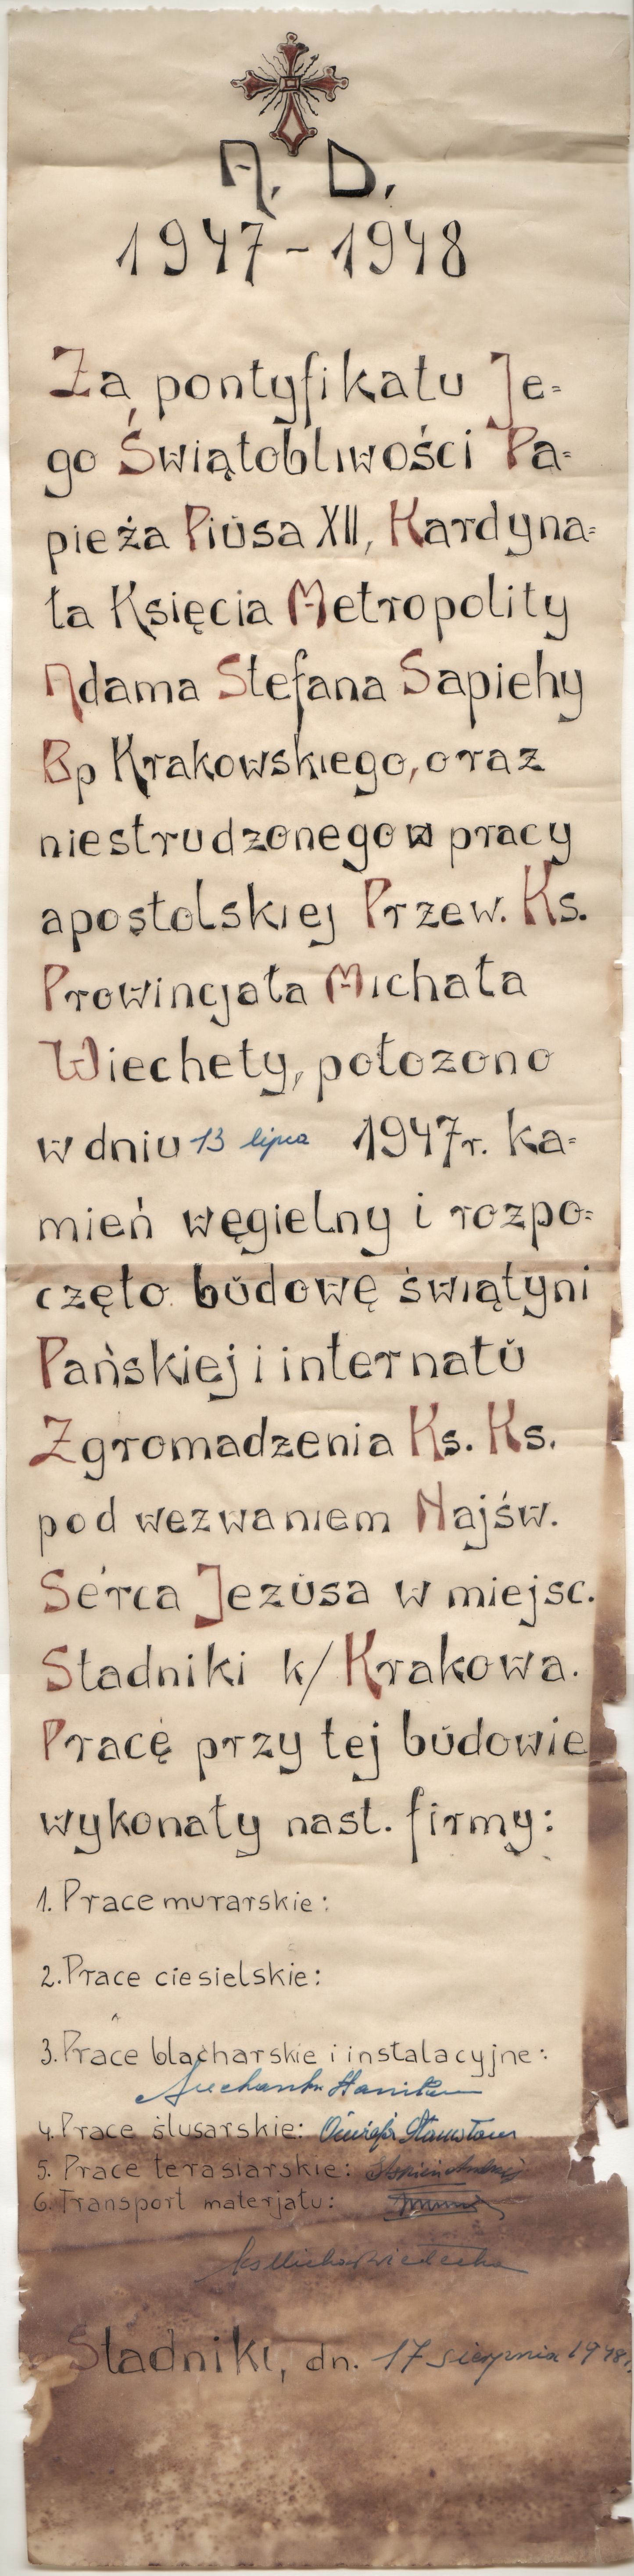 A. D.
1947-1948
Za pontyfikatu Je=
go Świątobliwości Pa=
pieża Piusa XII, Kardyna=
ła Księcia Metropolity
Adama Stefana Sapiehy
Bp Krakowskiego, oraz
niestrudzonego w pracy
apostolskiej Przew. Ks.
Prowincjała Michała
Wiechety, położono
w dniu 13 lipca 1947r. ka=
mień węgielny i rozpo=
częto budowę świątyni
Pańskiej i internatu
Zgromadzenia Ks. Ks.
pod wezwaniem Najśw.
Serca Jezusa w miejsc.
Stadniki k/Krakowa.
Pracę przy tej budowie
wykonały nast. firmy:
1. Prace murarskie:
2. Prace ciesielskie:
3. Prace blacharskie i instalacyjne:
4. Prace ślusarskie: Stanisław
5. Prace terasiarskie: Andrzej
6. Transport materjału:
ks Michał Wiecheta
Stadniki, dn. 17 sierpnia 1948r.